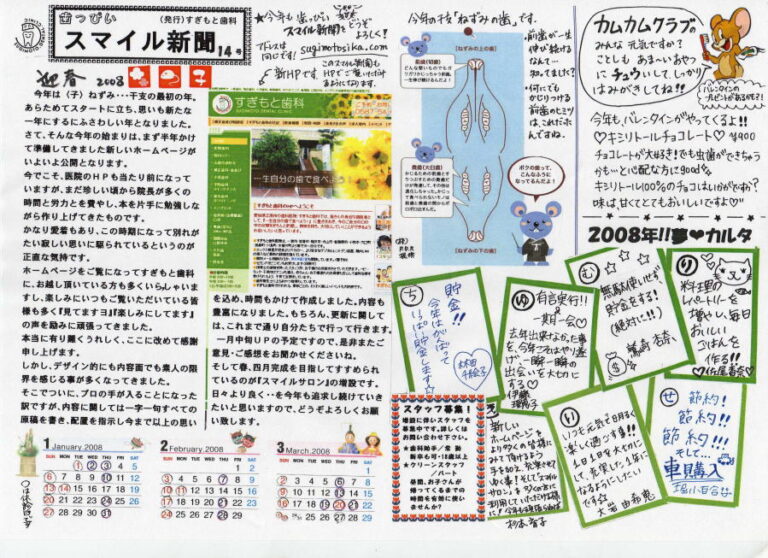 歯っぴい
(発行)すぎもと歯科
スマイル新聞
14号
迎春 2008
今年は(子)ねずみ・・・干支の最初の年。
あらためてスタートに立ち、思いも新たな
一年にするにふさわしい年となりました。
さて、そんな今年の始まりは、まず半年かけ
て準備してきました新しいホームページが
いよいよ公開となります。
今でこそ、医院のHPも当たり前になって
いますが、まだ珍しい頃から院長が多くの
時間と労力とを費やし、本を片手に勉強しな
がら作り上げてきたものです。
かなり愛着もあり、この時期になって別れが
たい寂しい思いに駆られているというのが
正直な気持です。
ホームページをご覧になってすぎもと歯科
に、お越し頂いている方も多くいらしゃいま
すし、楽しみにいつもご覧いただいている皆
様も多く『見てます』『楽しみにしてます』
の声を励みに頑張ってきました。
本当に有り難くうれしく、ここに改めて感謝
申し上げます。
しかし、デザイン的にも内容面でも素人の限
界を感じる事が多くなってきました。
そこでついに、プロの手が入ることになった
訳ですが、内容に関しては一字一句すべての
原稿を書き、配置を指示し今まで以上の思い
☆今年も歯っぴい
スマイル新聞をどうぞ
よろしく!
アドレスは
同じです!
sugimotosika.com
このスマイル新聞も
HPでご覧いただけ
るようになります。
新HPです。
すぎもと歯科
一生自分の歯で食べよう
を込め、時間もかけて作成しました。内容も
豊富になりました。もちろん、更新に関して
は、これまで通り自分たちで行って行きます。
一月中旬UPの予定ですので、是非またご
意見・ご感想をお聞かせくださいね。
そして春、四月完成を目指してすすめられ
ているのが『スマイルサロン』の増設です。
日々より良く・・を今年も追求し続けていき
たいと思いますので、どうぞよろしくお願い
致します。
今年の干支「ねずみの歯」です。
【ねずみの上の歯】
前歯(切歯)
奥歯(大臼歯)
【ねずみの下の歯】
ボクの歯って、
こんなふうに
なってるんだよ!
前歯が一生
伸び続ける
なんて…
知ってました?
何にでも
かじりつける
前歯のヒミツ
は、これだった
んですね。
カムカムクラブの
みんな元気ですか?
ことしも あま〜いおやつ
に チュウいして、しっかり
はみがきしてね!!
バレンタインの
プレゼントがあるよ!
今年も、バレンタインがやってくるよ!!
♡キシリトールチョコレート♡ ¥400
チョコレートが大好き!でも虫歯ができちゃう
かも…とご心配な方にgood
キシリトール100%のチョコはいかがですか?
味は、甘くてとてもおいしいですよ♡
2008年!!夢♥カルタ
ち
貯金!!
今年はがんばって
いっぱい貯金します
ゆ
有言実行!!
一期一会♡
去年出来なかった事
を、今年こそはやり遂
げ、一瞬一瞬の
出会いを大切に
する♡
む
無駄使いせず
貯金をする!
(絶対に!!)
り
料理の
レパートリーを
増やし、毎日
おいしい
ごはんを
作る!!
佐尾香奈
新しい
ホームページを
より多くの皆様に
い
いつも元気で明るく
楽しく過ごす!!
1日1日を大切に
して、充実した1年に
なるようにしたい
です☆
せ
節約!
節約!!
節約!!!
そして…
車購入
スタッフ募集!
増設に伴いスタッフを
募集中です。詳しくは
お問い合わせ下さい。
★歯科助手/常勤
新卒も可・18歳以上
★クリーンスタッフ
/パート
昼間、お子さんが
帰ってくるまでの
時間を有効に使い
ませんか?
1 January 2008
SUN MON TUE WED THU FRI SAT
1 2 3 4 5
6 7 8 9 10 11 12
13 14 15 16 17 18 19
20 21 22 23 24 25 26
27 28 29 30 31
2 February 2008
SUN MON TUE WED THU FRI SAT
1 2
3 4 5 6 7 8 9
10 11 12 13 14 15 16
17 18 19 20 21 22 23
24 25 26 27 28 29
3 March 2008
SUN MON TUE WED THU FRI SAT
1
2 3 4 5 6 7 8
9 10 11 12 13 14 15
16 17 18 19 20 21 22
23 24 25 26 27 28 29
30 31
○は休診日です